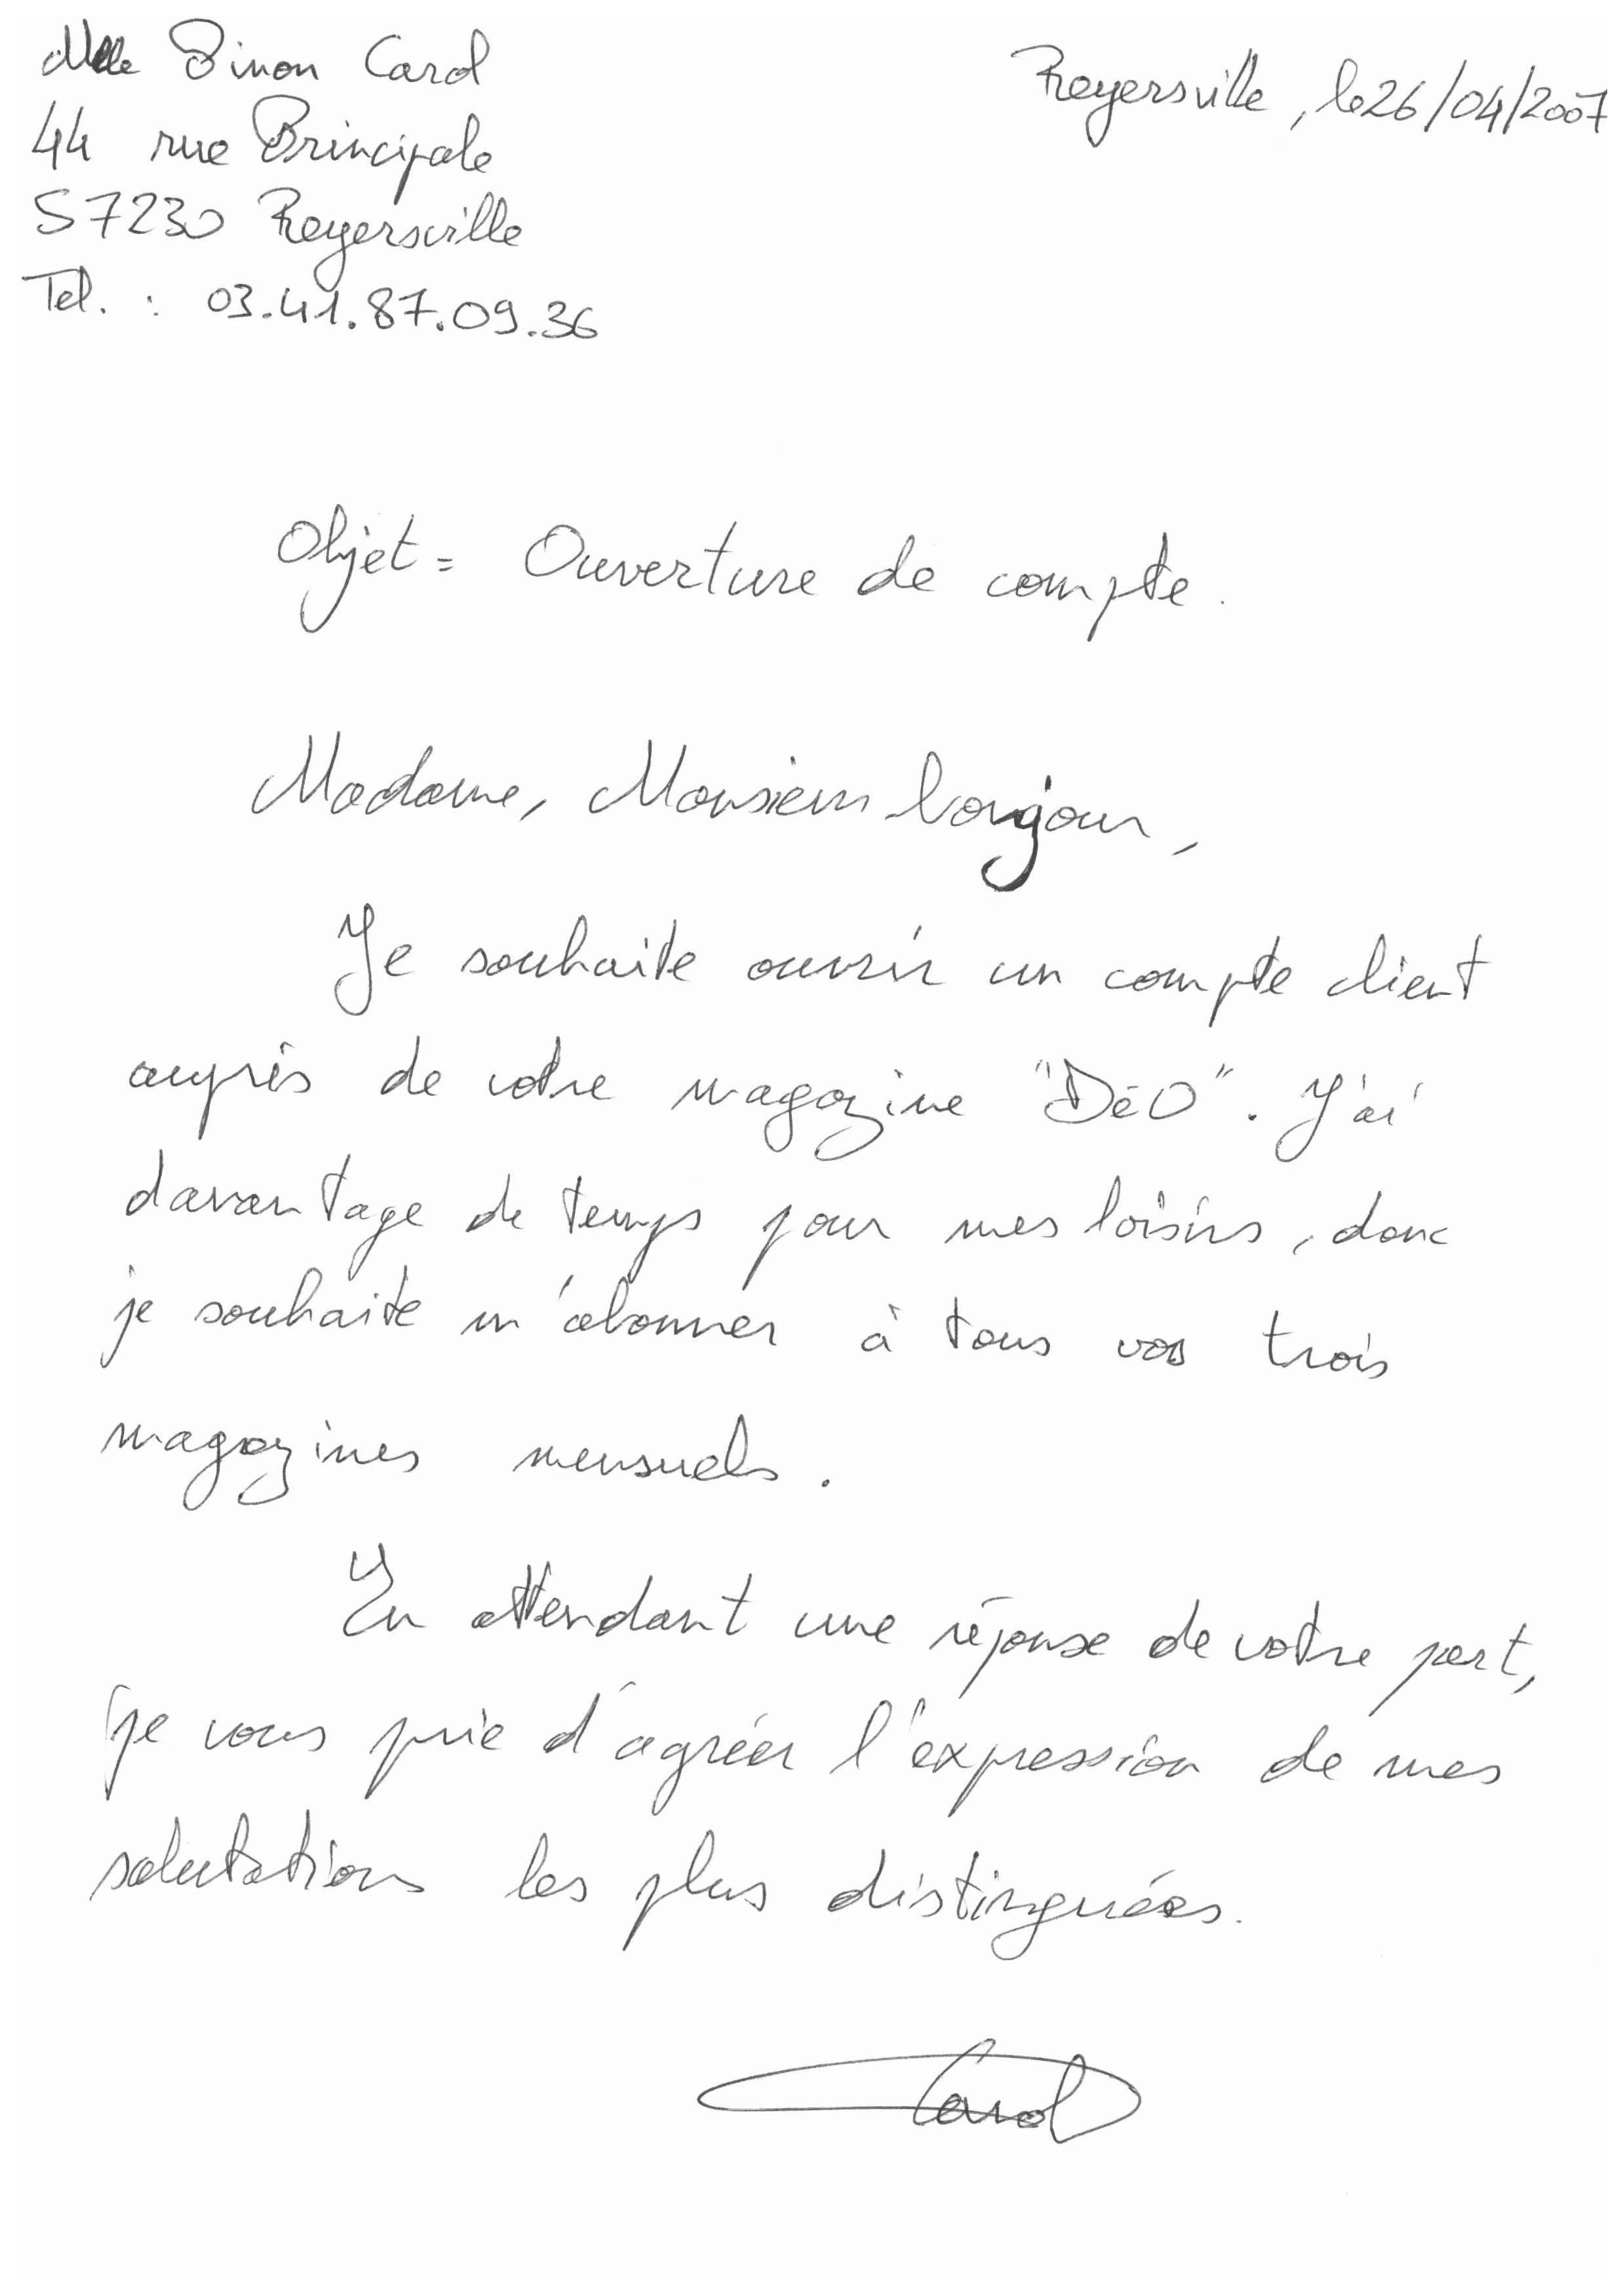 Mlle Pinon Carol
44 rue Principale
57230 Reyersville
Tel. : 03.41.87.09.36
Reyersville, le 26/04/2007
Objet = Ouverture de compte.
Madame, Monsieur bonjour,
Je souhaite ouvrir un compte client
auprès de votre magazine "DéO". J'ai
davantage de temps pour mes loisirs, donc
je souhaite m'abonner à tous vos trois
magazines mensuels.
En attendant une réponse de votre part,
je vous prie d'agréer l'expression de mes
salutations les plus distinguées.
Carol